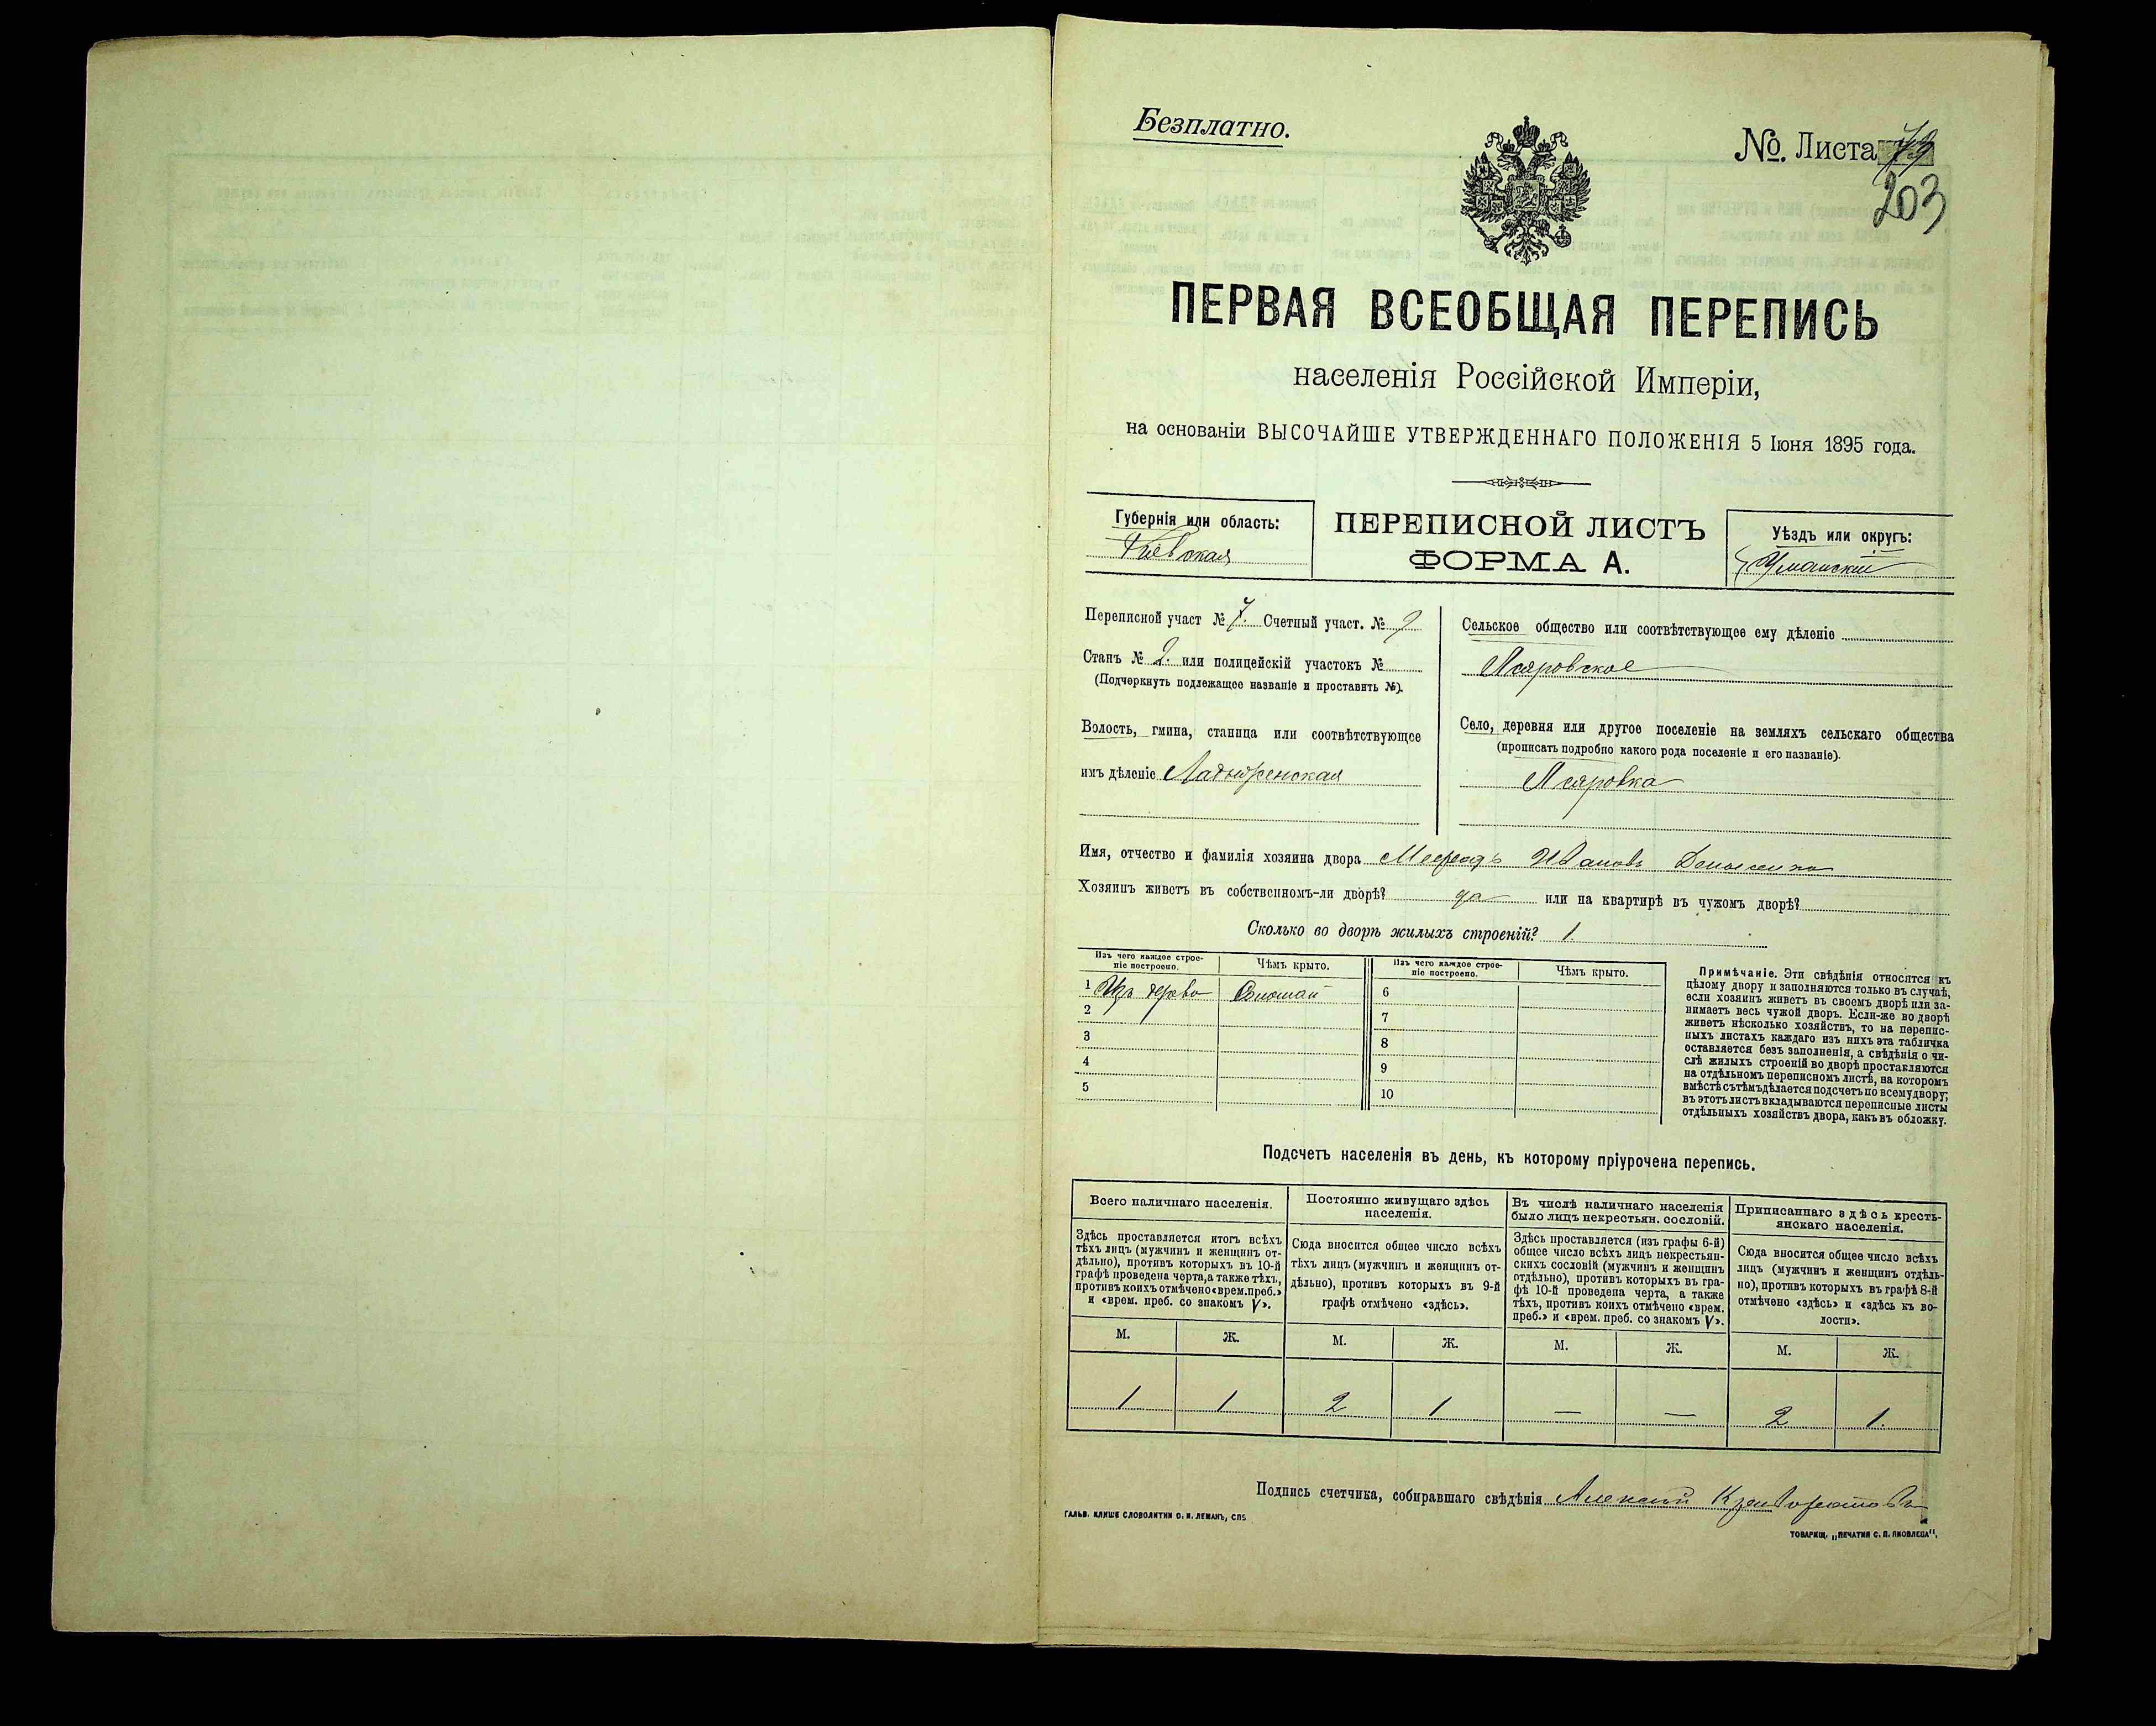 Безплатно.
№. Листа 79
203
ПЕРВАЯ ВСЕОБЩАЯ ПЕРЕПИСЬ
населенія Россійской Имперіи,
на основаніи ВЫСОЧАЙШЕ УТВЕРЖДЕННАГО ПОЛОЖЕНІЯ 5 Іюня 1895 года.
Губернія или область:
Кіевская
ПЕРЕПИСНОЙ ЛИСТЪ
ФОРМА А.
Уѣздъ или округъ:
Уманскій
Переписной участ № 7. Счетный участ. № 9
Станъ № 2. или полицейскій участокъ №
(Подчеркнуть подлежащее названіе и проставить №).
Волость, гмина, станица или соотвѣтствующее
имъ дѣленіе Ладыженская
Сельское общество или соотвѣтствующее ему дѣленіе
Псяровское
Село, деревня или другое поселеніе на земляхъ сельскаго общества
(прописать подробно какого рода поселеніе и его названіе).
Псяровка
Имя, отчество и фамилія хозяина двора Ивановъ
Хозяинъ живетъ въ собственномъ-ли дворѣ? да или на квартирѣ въ чужомъ дворѣ?
Сколько во дворѣ жилыхъ строеній? 1.
Изъ чего каждое строе-
ніе построено.
Чѣмъ крыто.
Изъ чего каждое строе-
ніе построено.
Чѣмъ крыто.
1 Изъ дерева
6
2
7
3
8
4
9
5
10
Примѣчаніе. Эти свѣдѣнія относятся къ
цѣлому двору и заполняются только въ случаѣ,
если хозяинъ живетъ въ своемъ дворѣ или за-
нимаетъ весь чужой дворъ. Если-же во дворѣ
живетъ нѣсколько хозяйствъ, то на перепис-
ныхъ листахъ каждаго изъ нихъ эта табличка
оставляется безъ заполненія, а свѣдѣнія о чи-
слѣ жилыхъ строеній во дворѣ проставляются
на отдѣльномъ переписномъ листѣ, на которомъ
вмѣстѣ съ тѣмъ дѣлается подсчетъ по всему двору;
въ этотъ листъ вкладываются переписные листы
отдѣльныхъ хозяйствъ двора, какъ въ обложку.
Подсчетъ населенія въ день, къ которому пріурочена перепись.
Всего наличнаго населенія.
Здѣсь проставляется итогъ всѣхъ
тѣхъ лицъ (мужчинъ и женщинъ от-
дѣльно), противъ которыхъ въ 10-й
графѣ проведена черта, а также тѣхъ,
противъ коихъ отмѣчено «врем. преб.»
и «врем. преб. со знакомъ V».
Постоянно живущаго здѣсь
населенія.
Сюда вносится общее число всѣхъ
тѣхъ лицъ (мужчинъ и женщинъ от-
дѣльно), противъ которыхъ въ 9-й
графѣ отмѣчено «здѣсь».
Въ числѣ наличнаго населенія
было лицъ некрестьян. сословій.
Здѣсь проставляется (изъ графы 6-й)
общее число всѣхъ лицъ некрестьян-
скихъ сословій (мужчинъ и женщинъ
отдѣльно), противъ которыхъ въ гра-
фѣ 10-й проведена черта, а также
тѣхъ, противъ коихъ отмѣчено «врем.
преб.» и «врем. преб. со знакомъ V».
Приписаннаго здѣсь кресть-
янскаго населенія.
Сюда вносится общее число всѣхъ
лицъ (мужчинъ и женщинъ отдѣль-
но), противъ которыхъ въ графѣ 8-й
отмѣчено «здѣсь» и «здѣсь къ во-
лости».
М. Ж. М. Ж. М. Ж. М. Ж.
1 1 2 1 — — 2 1.
Подпись счетчика, собиравшаго свѣдѣнія Алексій
ГАЛЬВ. КЛИШЕ СЛОВОЛИТНИ О. И. ЛЕМАНЪ, СПБ
ТОВАРИЩ. „ПЕЧАТНЯ С. П. ЯКОВЛЕВА“.